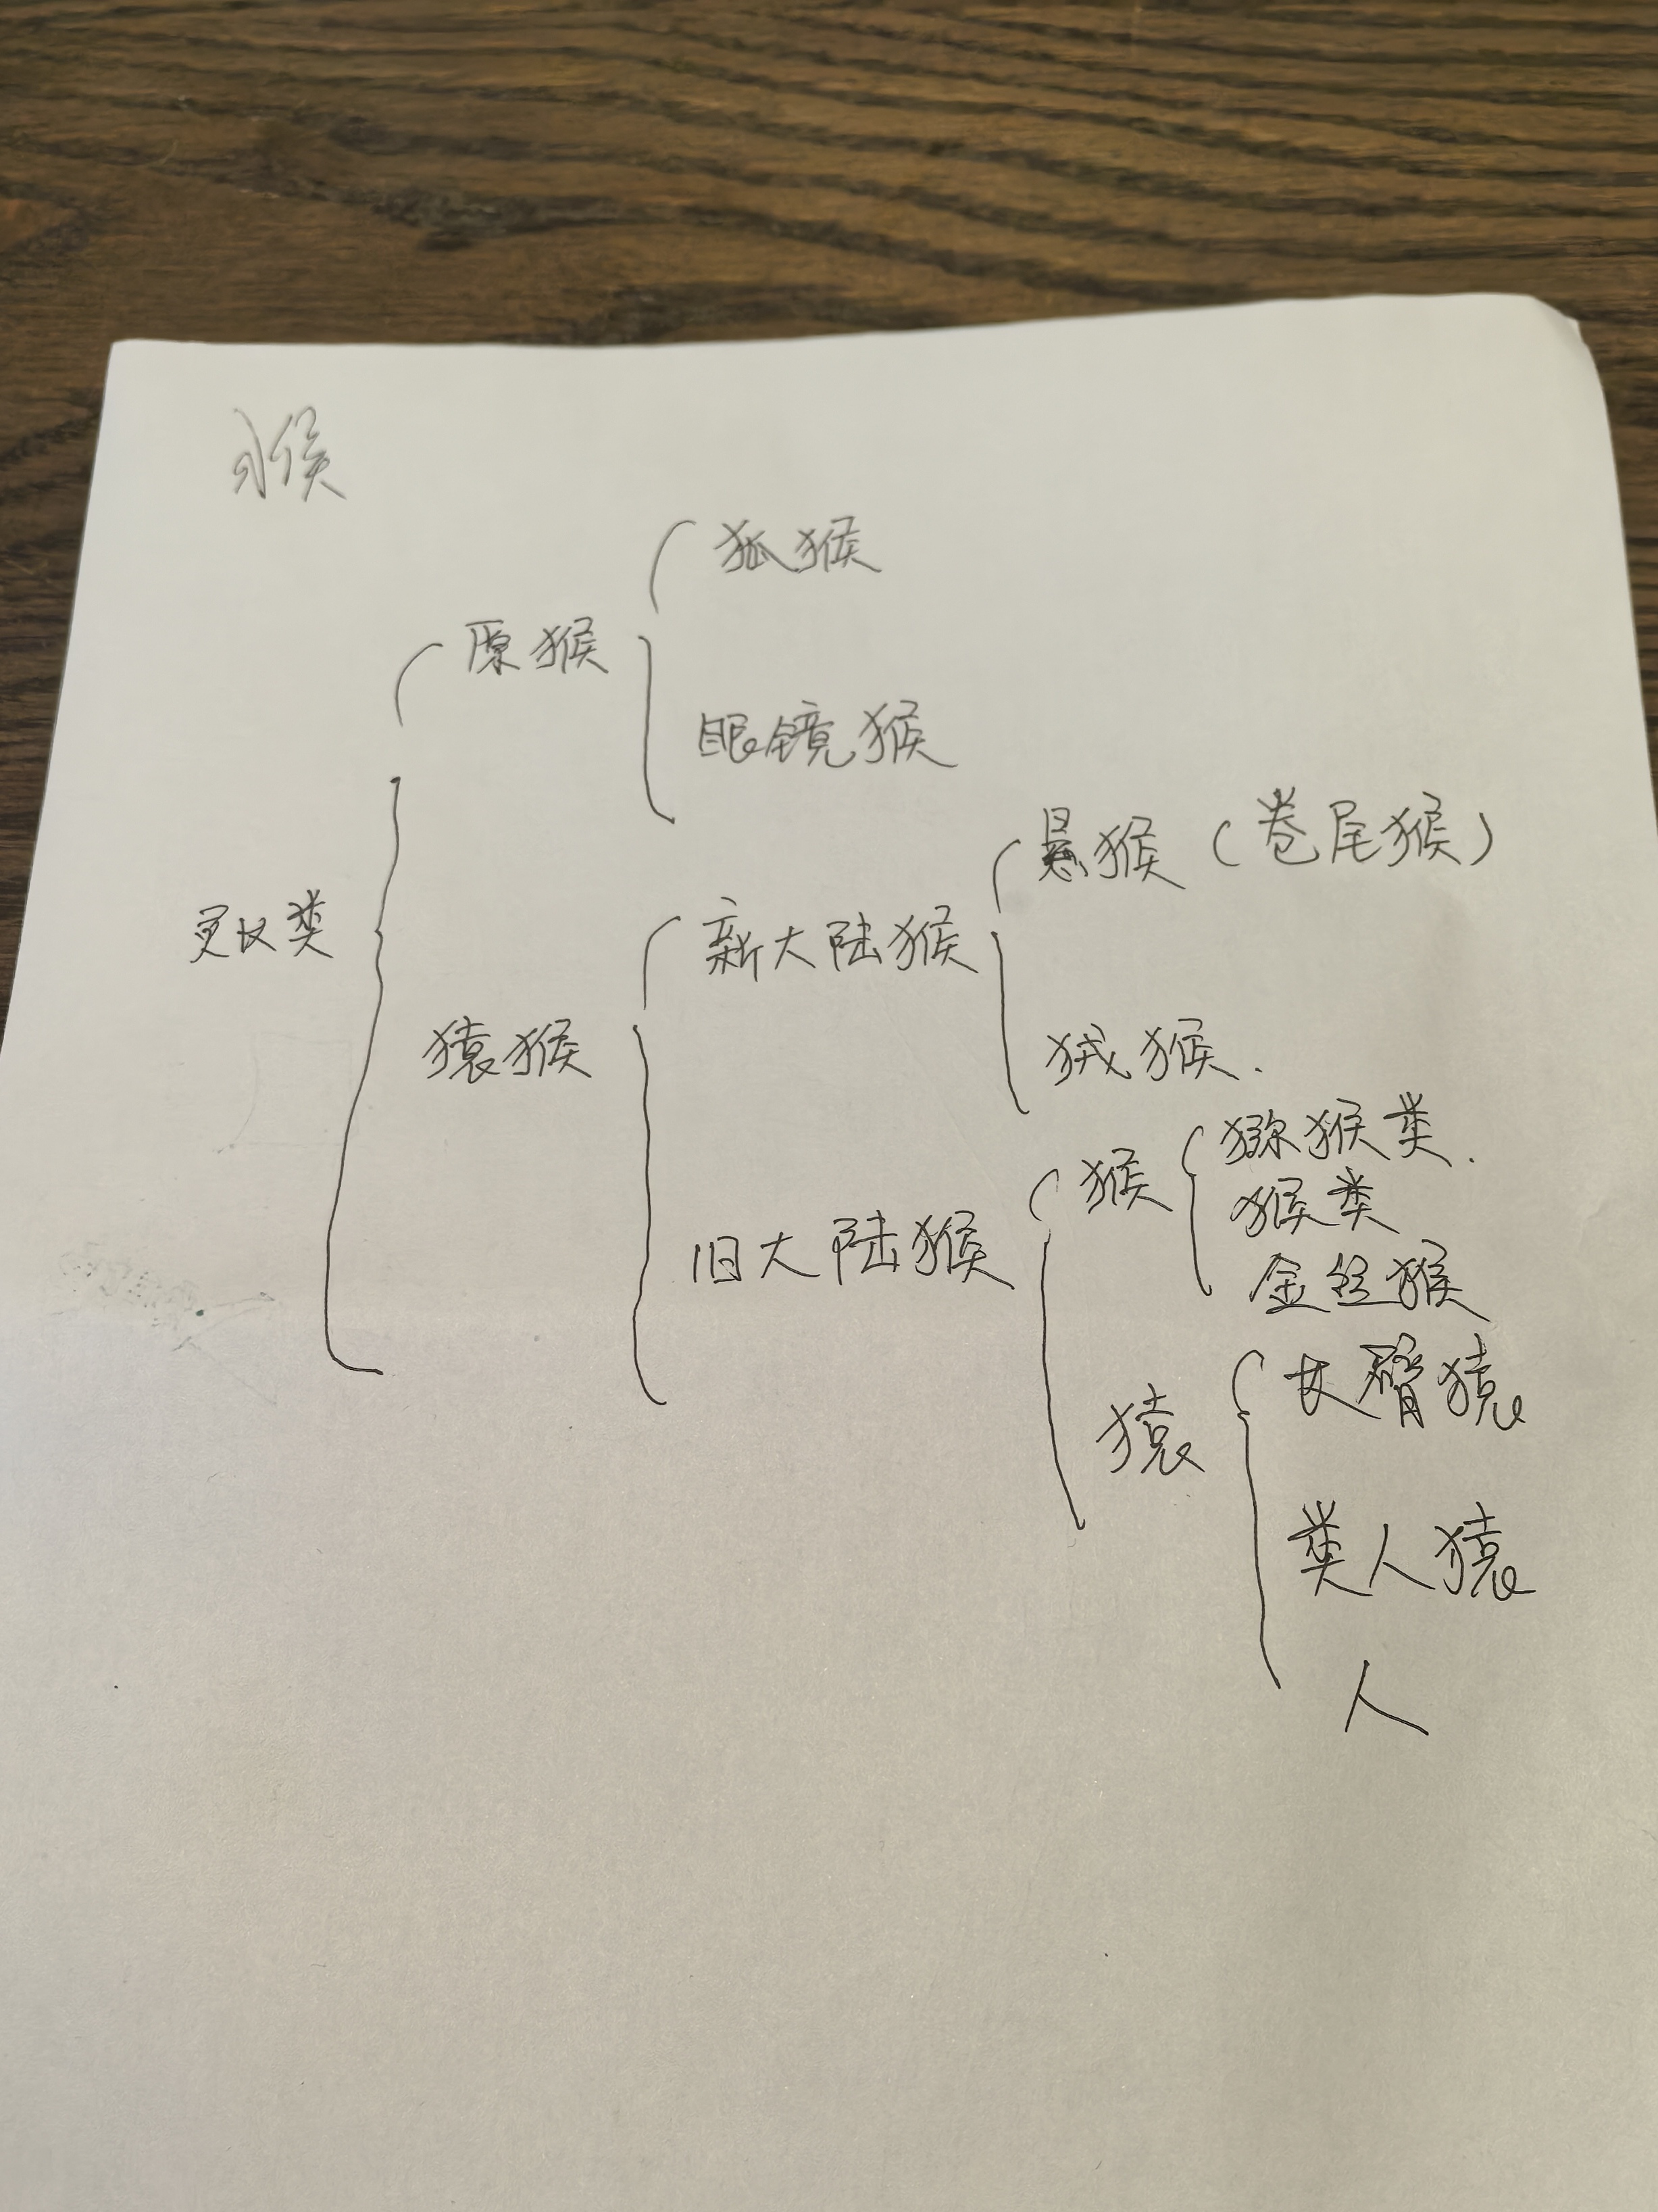 猴
狐猴
原猴
眼镜猴
悬猴(卷尾猴)
灵长类
新大陆猴
猿猴
狨猴.
猕猴类.
猴
猴类
旧大陆猴
金丝猴
长臂猿
猿
类人猿
人